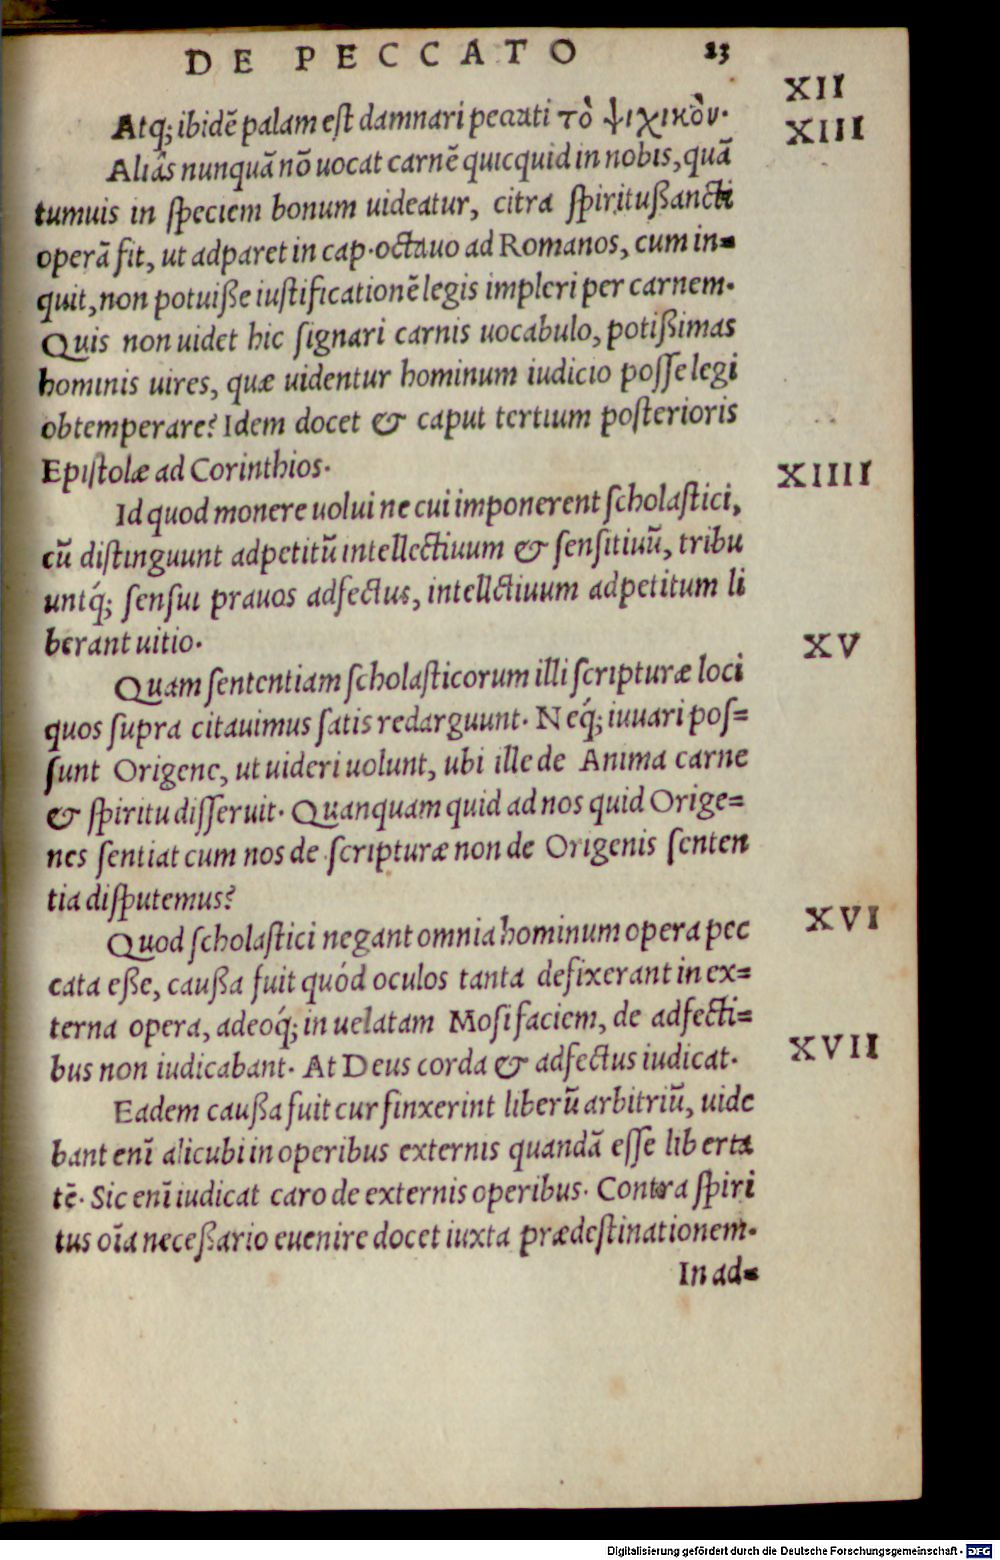 DE PECCATO 23
XII
Atq; ibidē palam est damnari peccati τὸ ψιχικὸν.
XIII
Aliâs nunquā nō uocat carnē quicquid in nobis, quā
tumuis in speciem bonum uideatur, citra spiritußancti
operā fit, ut adparet in cap. octauo ad Romanos, cum in=
quit, non potuiße iustificationē legis impleri per carnem.
Quis non uidet hic signari carnis uocabulo, potißimas
hominis uires, quæ uidentur hominum iudicio posse legi
obtemperare? Idem docet & caput tertium posterioris
Epistolæ ad Corinthios.
XIIII
Id quod monere uolui ne cui imponerent scholastici,
cū distinguunt adpetitū intellectiuum & sensitiuū, tribu
untq́; sensui prauos adfectus, intellctiuum adpetitum li
berant uitio.
XV
Quam sententiam scholasticorum illi scripturæ loci
quos supra citauimus satis redarguunt. Neq́; iuuari pos=
sunt Origene, ut uideri uolunt, ubi ille de Anima carne
& spiritu disseruit. Quanquam quid ad nos quid Orige=
nes sentiat cum nos de scripturæ non de Origenis senten
tia disputemus?
XVI
Quod scholastici negant omnia hominum opera pec
cata eße, caußa fuit quód oculos tanta defixerant in ex=
terna opera, adeoq́; in uelatam Mosi faciem, de adfecti=
bus non iudicabant. At Deus corda & adfectus iudicat.
XVII
Eadem caußa fuit cur finxerint liberū arbitriū, uide
bant enī alicubi in operibus externis quandā esse liberta
tē. Sic enī iudicat caro de externis operibus. Contra spiri
tus oīa neceßario euenire docet iuxta prædestinationem.
In ad=
Digitalisierung gefördert durch die Deutsche Forschungsgemeinschaft - DFG